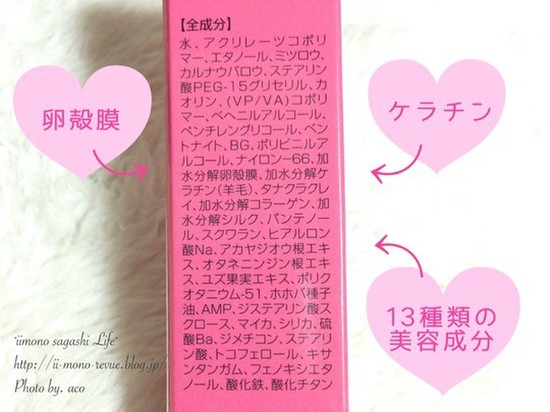 【全成分】
水、アクリレーツコポリ
マー、エタノール、ミツロウ、
カルナウバロウ、ステアリン
酸PEG-15グリセリル、カ
オリン、(VP/VA)コポリ
マー、ベヘニルアルコール、
ペンチレングリコール、ベン
トナイト、BG、ポリビニルア
ルコール、ナイロン-66、加
水分解卵殻膜、加水分解ケ
ラチン(羊毛)、タナクラクレ
イ、加水分解コラーゲン、加
水分解シルク、パンテノー
ル、スクワラン、ヒアルロン
酸Na、アカヤジオウ根エキ
ス、オタネニンジン根エキ
ス、ユズ果実エキス、ポリク
オタニウム-51、ホホバ種子
油、AMP、ジステアリン酸ス
クロース、マイカ、シリカ、硫
酸Ba、ジメチコン、ステアリ
ン酸、トコフェロール、キサ
ンタンガム、フェノキシエタ
ノール、酸化鉄、酸化チタン
卵殻膜
ケラチン
13種類の
美容成分
"iimono sagashi Life"
http://ii-mono-revue.blog.jp/
Photo by. aco